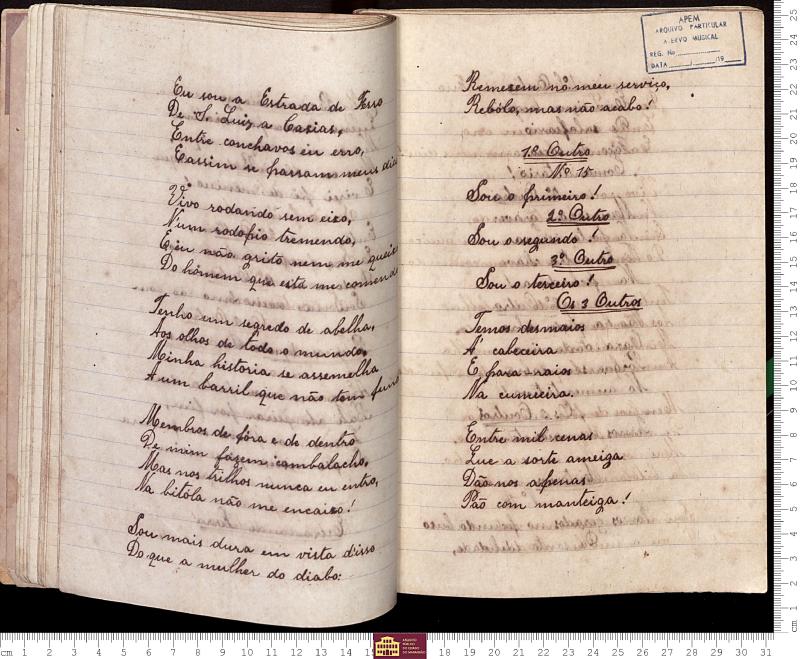 Eu sou a Estrada de Ferro
De S. Luiz a Caxias,
Entre conchavos eu erro,
E assim se passam meus dias
Vivo rodando sem eixo,
N'um rodopio tremendo,
E eu não grito nem me queixo
Do homem que está me comendo
Tenho um segredo de abelha,
Aos olhos de todo o mundo,
Minha historia se assemelha
A um barril que não tem fundo
Membros de fóra e de dentro
De mim fazem cambalacho,
Mas nos trilhos nunca eu entro,
Na bitóla não me encaixo!
Sou mais dura em vista disso
Do que a mulher do diabo:
Remexem no meu serviço,
Rebólo, mas não acabo!
1º Outro
Nº 15
Sou o primeiro!
2º Outro
Sou o segundo!
3º Outro
Sou o terceiro!
Os 3 Outros
Temos desmaios
A' cabeceira
E para raios
Na cumieira.
Entre mil cenas
Que a sorte ameiga
Dão nos apenas
Pão com manteiga!
APEM
ARQUIVO PARTICULAR
ACERVO MUSICAL
REG. No
DATA / /19
cm 1 2 3 4 5 6 7 8 9 10 11 12 13 14 15
ARQUIVO PÚBLICO DO ESTADO DO MARANHÃO
18 19 20 21 22 23 24 25 26 27 28 29 30 31
25 24 23 22 21 20 19 18 17 16 15 14 13 12 11 10 9 8 7 6 5 4 3 2 1 cm